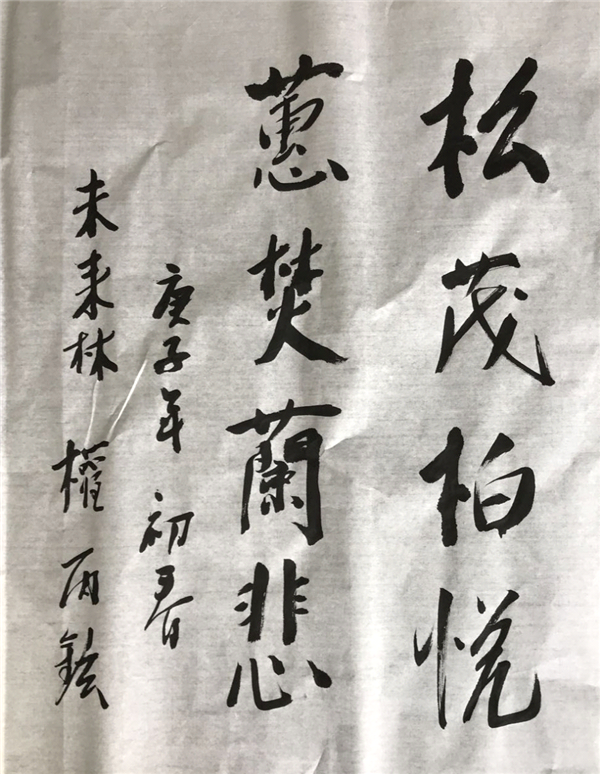 松茂柏悅
蕙焚蘭悲
庚子年 初春
未來林 權丙鉉